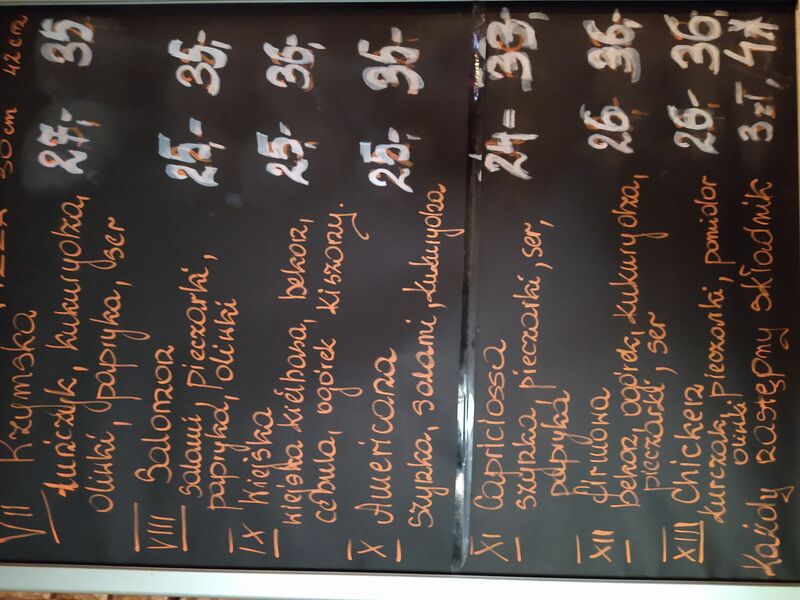 30 cm 42 cm
VII Rzymska 27,- 35
tuńczyk, kukurydza,
oliwki, papryka, ser
VIII Salomon 25,- 35,-
salami, pieczarki,
papryka, oliwki
IX Wiejska 25,- 36,-
wiejska kiełbasa, bekon,
cebula, ogórek kiszony.
X Americana 25,- 35-
szynka, salami, kukurydza
XI Capriciossa 24= 33,-
szynka, pieczarki, ser,
papryka
XII firmowa 26- 36,-
bekon, ogórek, kukurydza,
pieczarki, ser
XIII Chicken 26,- 36,
kurczak, pieczarki, pomidor
oliwki
Każdy następny składnik 3 zł, 4*